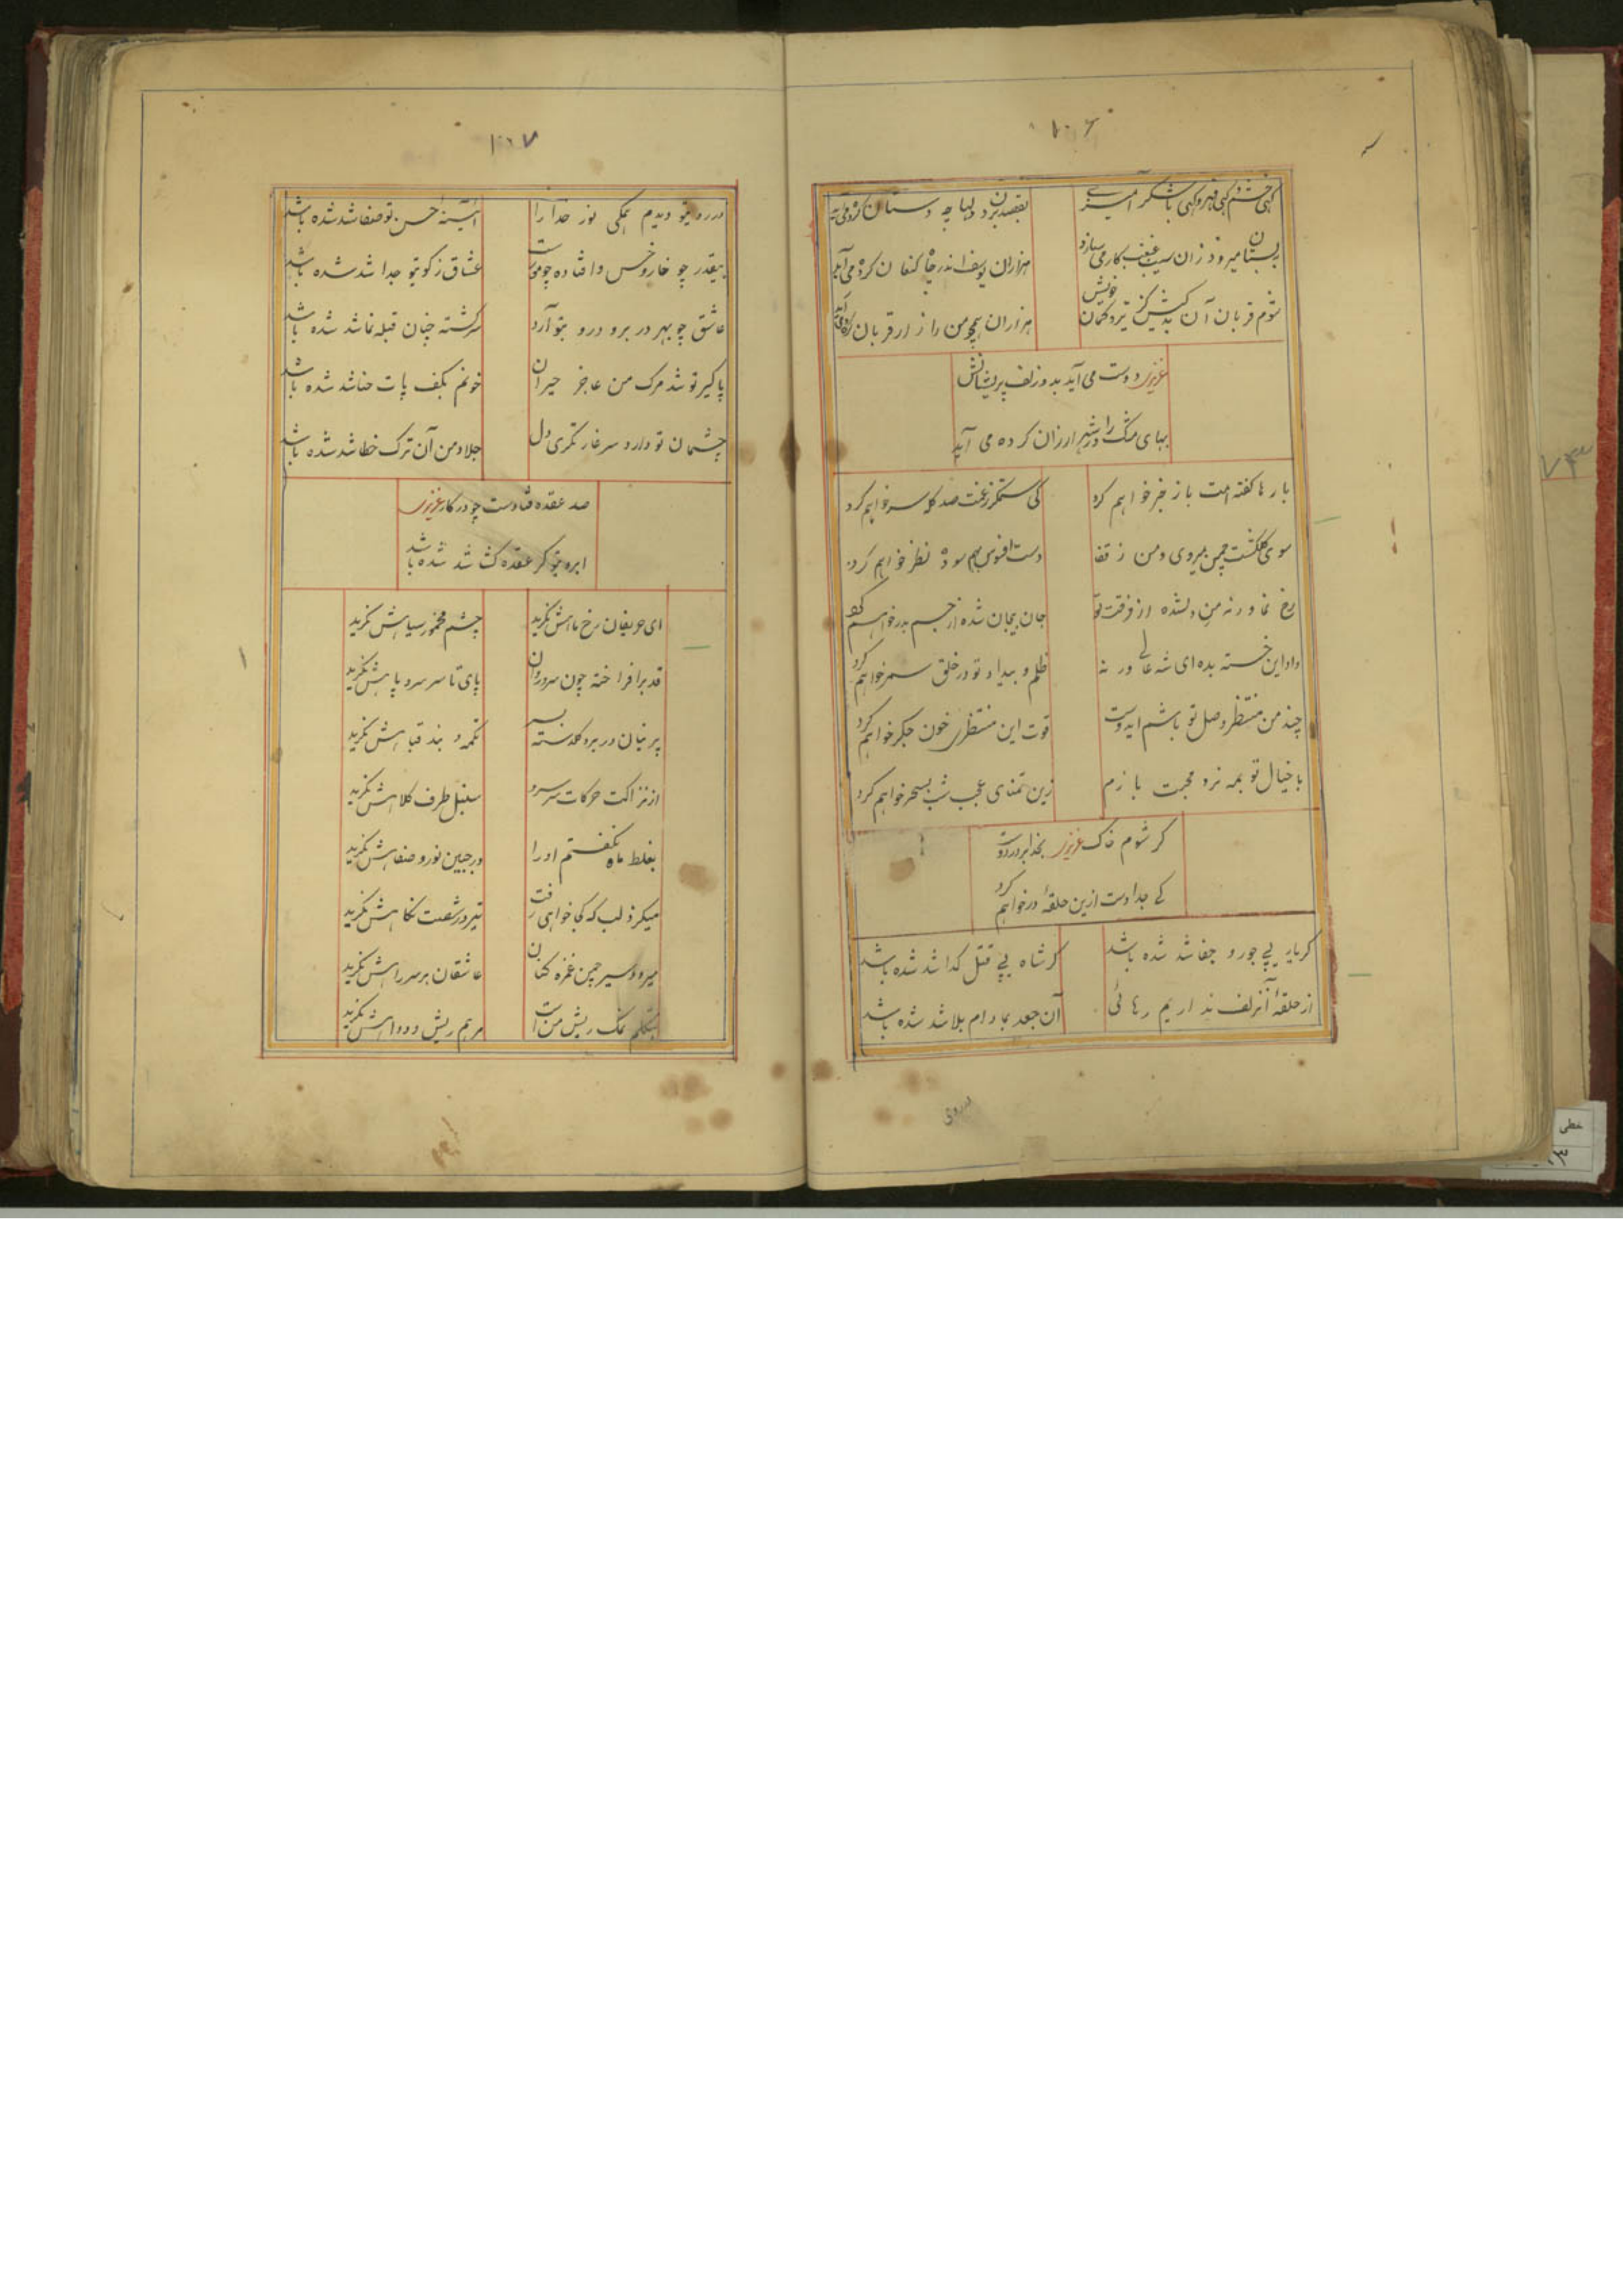 ۱۰۶
گهی خشم و گهی قهر و گهی باشکر آمیزی
بقصد بردن دلها چه دستان کرده می‌آید
هزاران یوسف اندر چاه کنعان کرده می‌آید
شوم قربان آن کیش کز تیر و کمان خویش
هزاران همچو من را زار قربان کرده می‌آید
عزیزی دوست می‌آید بدو زلف پریشانش
بهای مشک را در شهر ارزان کرده می آید
بارها گفته امت باز خبر خواهم کرد
کی ستمگر زغمت صد گله سر خواهم کرد
سوی گلگشت چمن میروی و من ز قفا
دست افسوس بهم سوده نظر خواهم کرد
رخ نما ورنه من دلشده از فرقت تو
جان بیجان شده از جسم بدر خواهم کرد
داد این خسته بده ای شه عالی ورنه
ظلم و بیداد تو در خلق سمر خواهم کرد
چند من منتظر وصل تو باشم ایدوست
قوت این منتظری خون جگر خواهم کرد
با خیال تو همه نرد محبت بازم
زین تمنای عجب شب بسحر خواهم کرد
گر شوم خاک عزیزی بخدا بر در دوست
کی جدا دست ازین حلقهٔ در خواهم کرد
گر یار پی جور و جفا شد شده باشد
گر شاه پی قتل گدا شد شده باشد
از حلقهٔ آنزلف نداریم رهائی
آن جعد بما دام بلا شد شده باشد
در روی
۱۰۷
در روی تو دیدم همگی نور خدا را
آئینهٔ حسن تو صفا شد شده باشد
بیقدر چو خار و خس وافتاده چو مویست
عشاق ز کوی تو جدا شد شده باشد
عاشق چو بهر در برود رو بتو آرد
سرگشته چنان قبله نما شد شده باشد
پاگیر تو شد مرگ من عاجز حیران
خونم بکف پات حنا شد شده باشد
چشمان تو دارد سر غارتگری دل
جلاد من آن ترک خطا شد شده باشد
صد عقده فتادست چو در کار عزیزی
ابروی تو گر عقده گشا شد شده باشد
ای حریفان رخ ماهش نگرید
چشم مخمور سیاهش نگرید
قد برافراخته چون سرو روان
پای تا سر سر و پاش نگرید
پرنیان در بر و گلدسته بسر
تکمه و بند قباهش نگرید
از نزاکت حرکات سر سرو
سنبل طرف کلاهش نگرید
بغلط ماه نگفتم او را
در جبین نور و صفاهش نگرید
میگزد لب که کجا خواهی رفت
تیر در شصت نگاهش نگرید
میرود سیر چمن غمزه کنان
عاشقان بر سر راهش نگرید
بتکلم نمک ریش من است
مرهم ریش و دواهش نگرید
۷۳
خطی